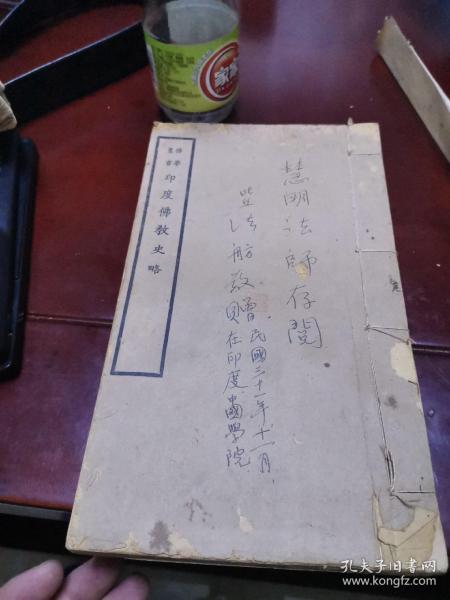 慧明法師存閱
法舫敬贈
民國三十一年十一月
在印度中國學院
佛學
叢書
印度佛教史略
孔夫子旧书网
www.kongfz.com